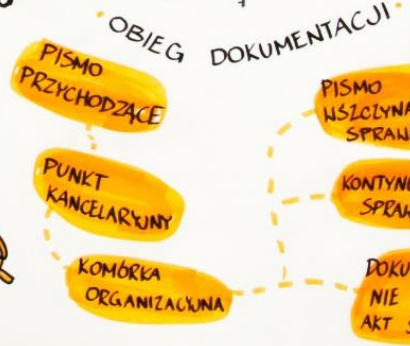 OBIEG DOKUMENTACJI
PISMO
PRZYCHODZĄCE
PUNKT
KANCELARYJNY
KOMÓRKA
ORGANIZACYJNA
PISMO
WSZCZYNA
SPRAW
KONTYN
SPRAW
DOKU
NIE
AKT